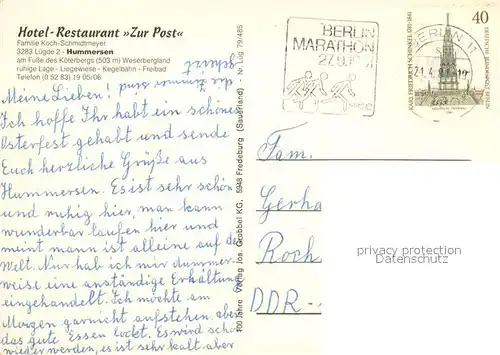 Hotel-Restaurant »Zur Post«
Familie Koch-Schmidtmeyer
3283 Lügde 2 - Hummersen
am Fuße des Köterbergs (503 m) Weserbergland
ruhige Lage - Liegewiese - Kegelbahn - Freibad
Telefon (0 52 83) 19 05/06
Meine Lieben!
Ich hoffe Ihr habt ein schönes
Osterfest gehabt und sende
Euch herzliche Grüße aus
Hummersen. Es ist sehr schön
und ruhig hier, man kann
wunderbar laufen hier und
meint mann ist alleine auf der
Welt. Nur hab ich mir dummer-
weise eine anständige Erkältung
eingehandelt. Ich möchte am
Morgen garnicht aufstehen aber
das gute Essen lockt. Es wird schon
wieder werden, es ist sehr kalt aber
die Zimmer sind
100 Jahre Verlag Jos. Grobbel KG, 5948 Fredeburg (Sauerland) - Nr. Lüg 79/485
BERLIN
MARATHON
27.9.
BERLIN 11
21.4.
40
KARL FRIEDRICH SCHINKEL 1781-1841
DEUTSCHE BUNDESPOST BERLIN
Fam.
Gerha
Roch
DDR-
privacy protection
Datenschutz